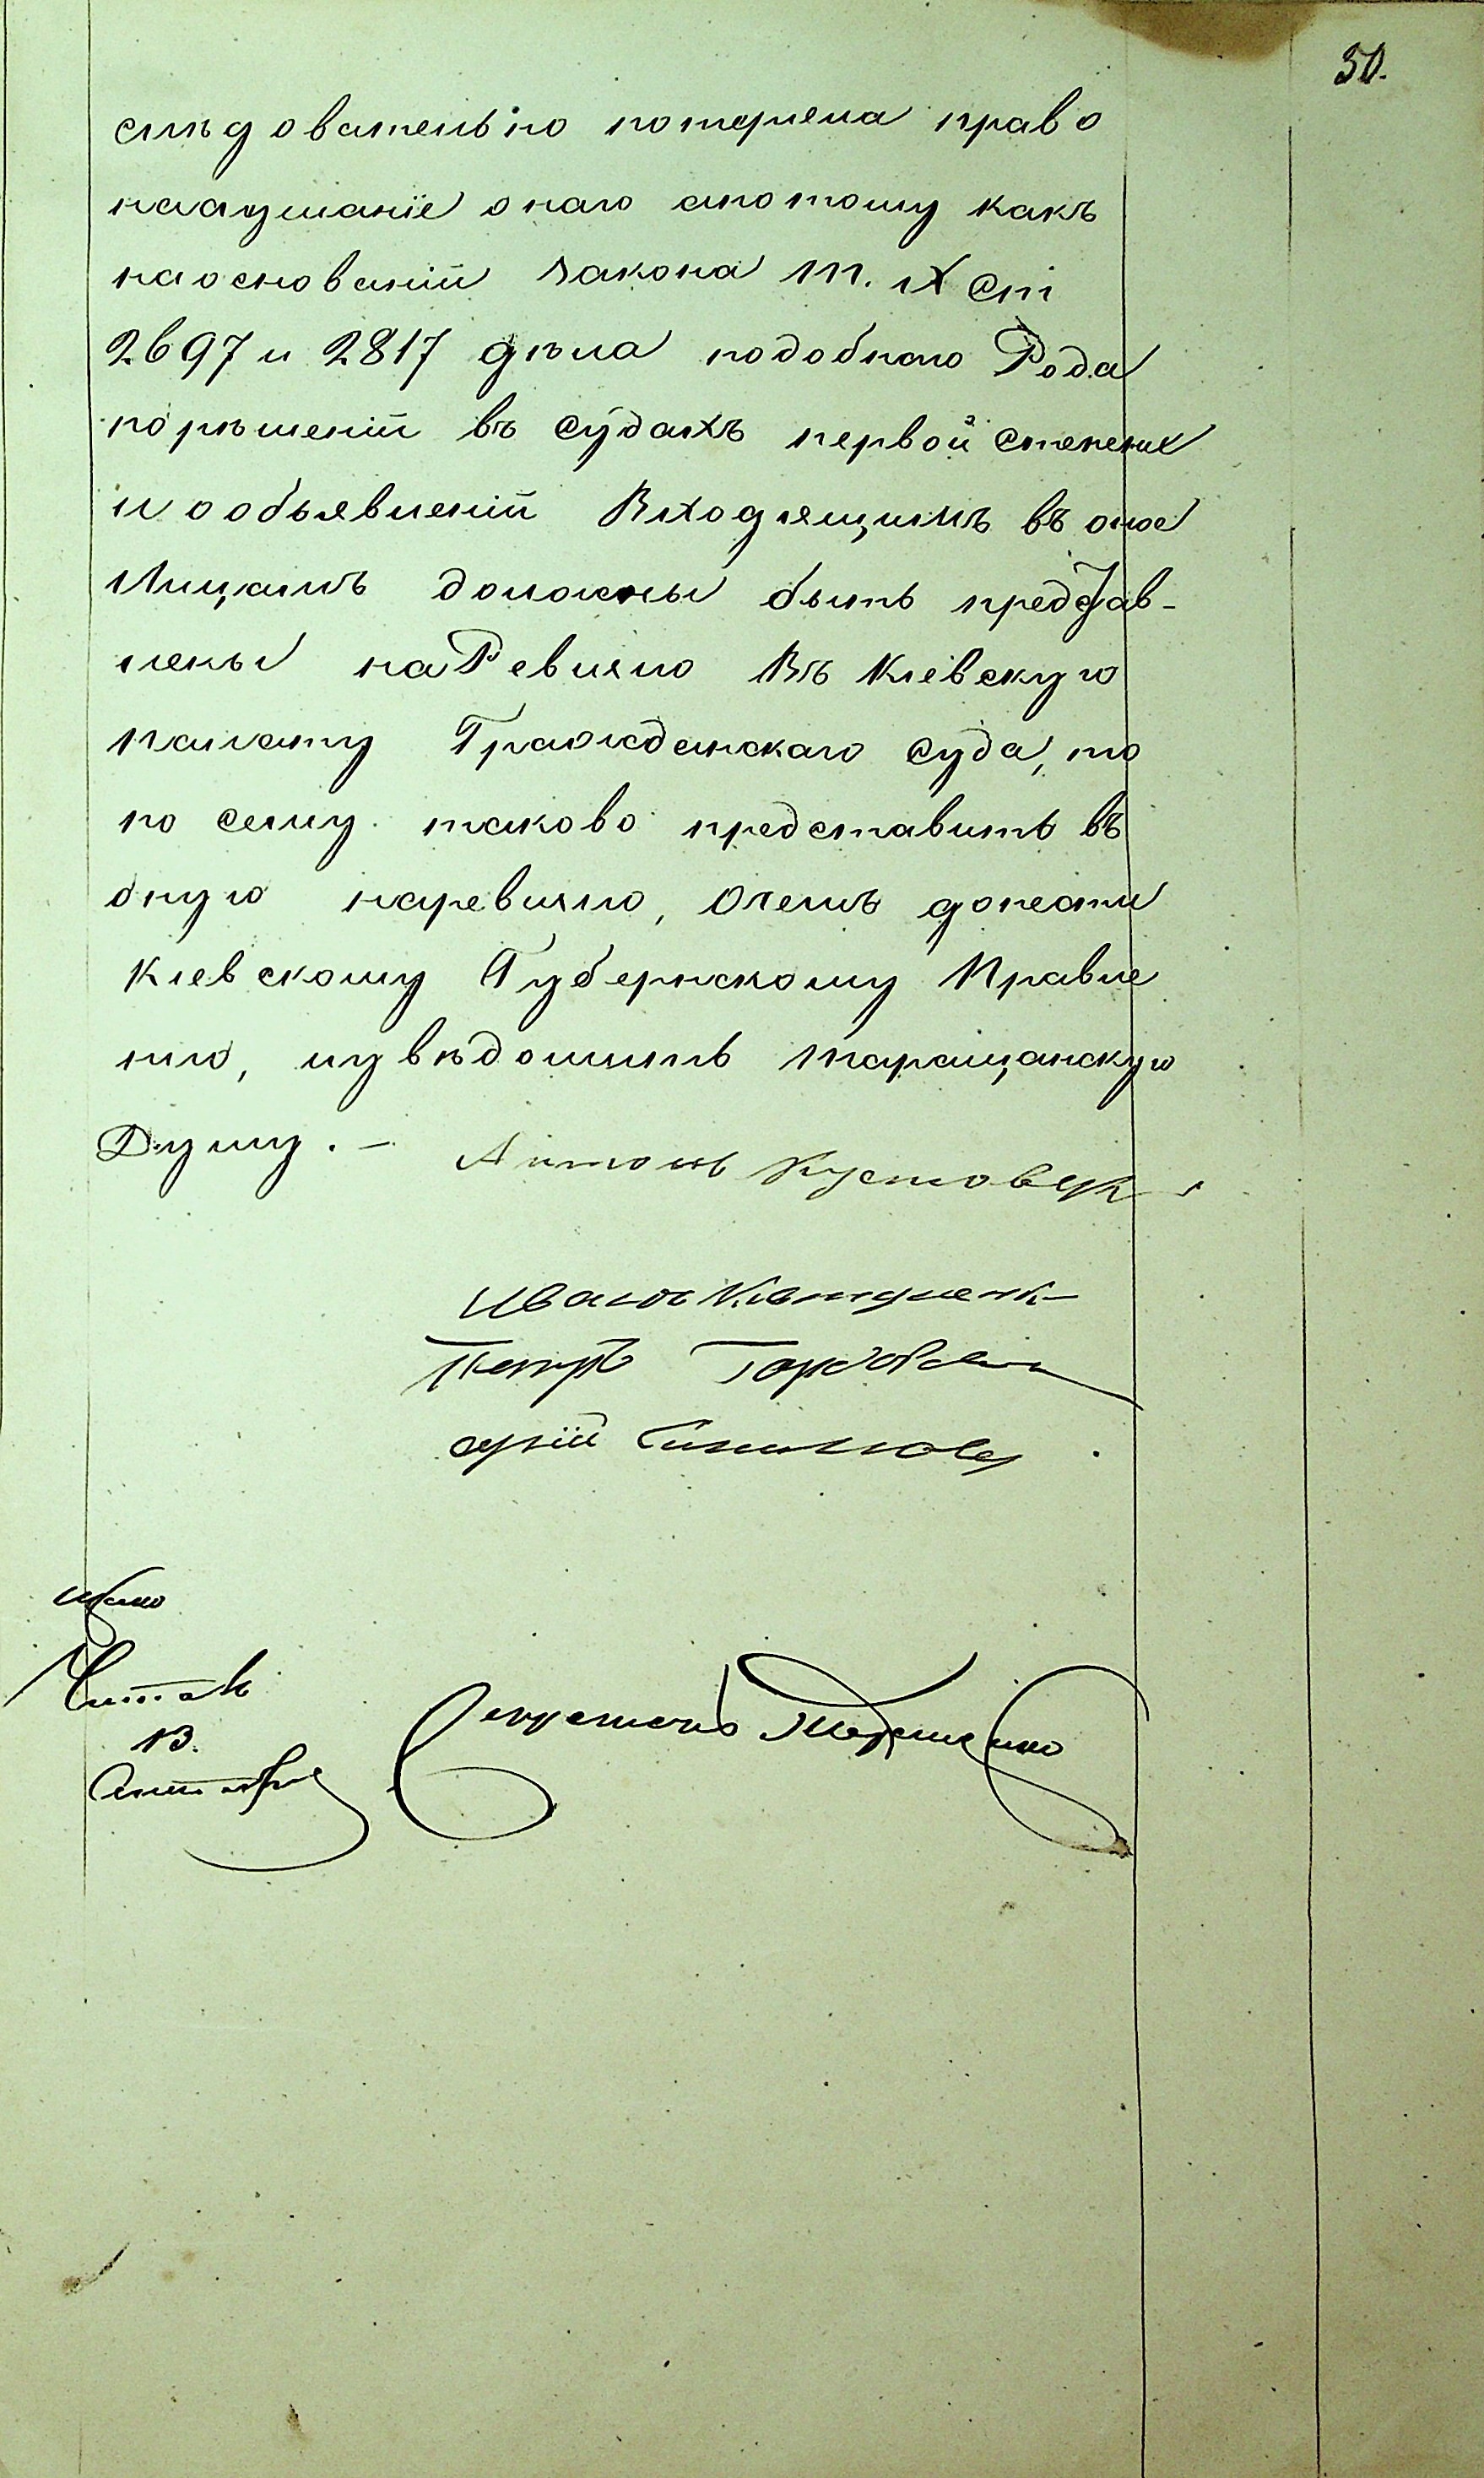 50.
слѣдовательно потеряла право
наадманіе онаго апотому какъ
наоснованіи закона т. IX ст
2697 и 2817 дѣла подобнаго Рода
порѣшеніи въ судахъ первой степени
и ообьявленіи Входящимъ въ оное
Лицамъ должны быть представ-
лены наРевизію Въ Кіевскую
палату Гражданскаго суда, то
по сему таково представить въ
оную наревизію, Очемъ донести
Кіевскому Губернскому Правле
нію, иувѣдомить Таращанскую
Думу. —
Антонъ
Иванъ
Петръ
Читалъ
Секретарь